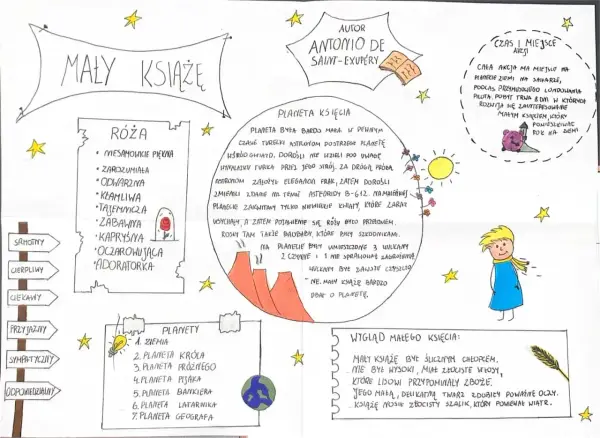 MAŁY KSIĄŻĘ
AUTOR
ANTONIO DE
SAINT-EXUPÉRY
CZAS I MIEJSCE
AKCJI
CAŁA AKCJA MA MIEJSCE NA
PLANECIE ZIEMI NA SAHARZE,
PODCZAS PRZYMUSOWEGO LĄDOWANIA
PILOTA. POBYT TRWA 8 DNI W KTÓRYCH
ROZWIJA SIĘ ZAINTERESOWANIE
MAŁYM KSIĘCIEM, KTÓRY
ROK NA ZIEMI
RÓŻA
• NIESAMOWICIE PIĘKNA
• ZAROZUMIAŁA
• ODWAŻNA
• KŁAMLIWA
• TAJEMNICZA
• ZABAWNA
• KAPRYŚNA
• OCZAROWUJĄCA
• ADORATORKA
PLANETA KSIĘCIA
PLANETA BYŁA BARDO MAŁA. W PEWNYM
CZASIE TURECKI ASTRONOM DOSTRZEGŁ PLANETĘ
WŚRÓD GWIAZD. DOROŚLI NIE WZIĘLI POD UWAGĘ
TURKA PRZEZ JEGO STRÓJ. ZA DRUGĄ PRÓBĄ
ASTRONOM ZAŁOŻYŁ ELEGANCKI FRAK, ZATEM DOROŚLI
ZMIENILI ZDANIE NA TEMAT ASTEROIDY B-612. NA MALEŃKIEJ
PLANECIE ZAKWITAŁY TYLKO NIEWIELKIE KWIATY, KTÓRE ZARAZ
A ZATEM POJAWIENIE SIĘ RÓŻY BYŁO PRZEŁOMEM.
ROSŁY TAM TAKŻE BAOBABY, KTÓRE BYŁY SZKODNIKAMI.
NA PLANECIE BYŁY UMIESZCZONE 3 WULKANY
2 CZYNNE I 1 NIE
WULKANY BYŁY ZAWSZE CZYSZCZO
NE. MAŁY KSIĄŻĘ BARDZO
DBAŁ O PLANETĘ.
SAMOTNY
CIERPLIWY
CIEKAWY
PRZYJAZNY
SYMPATYCZNY
ODPOWIEDZIALNY
PLANETY
1. ZIEMIA
2. PLANETA KRÓLA
3. PLANETA PRÓŻNEGO
4. PLANETA PIJAKA
5. PLANETA BANKIERA
6. PLANETA LATARNIKA
7. PLANETA GEOGRAFA
WYGLĄD MAŁEGO KSIĘCIA:
MAŁY KSIĄŻĘ BYŁ ŚLICZNYM CHŁOPCEM.
NIE BYŁ WYSOKI, MIAŁ ZŁOCISTE WŁOSY,
KTÓRE LISOWI PRZYPOMINAŁY ZBOŻE.
JEGO MAŁĄ, DELIKATNĄ TWARZ ZDOBIŁY POWAŻNE OCZY.
KSIĄŻĘ NOSIŁ ZŁOCISTY SZALIK, KTÓRY PORYWAŁ WIATR.